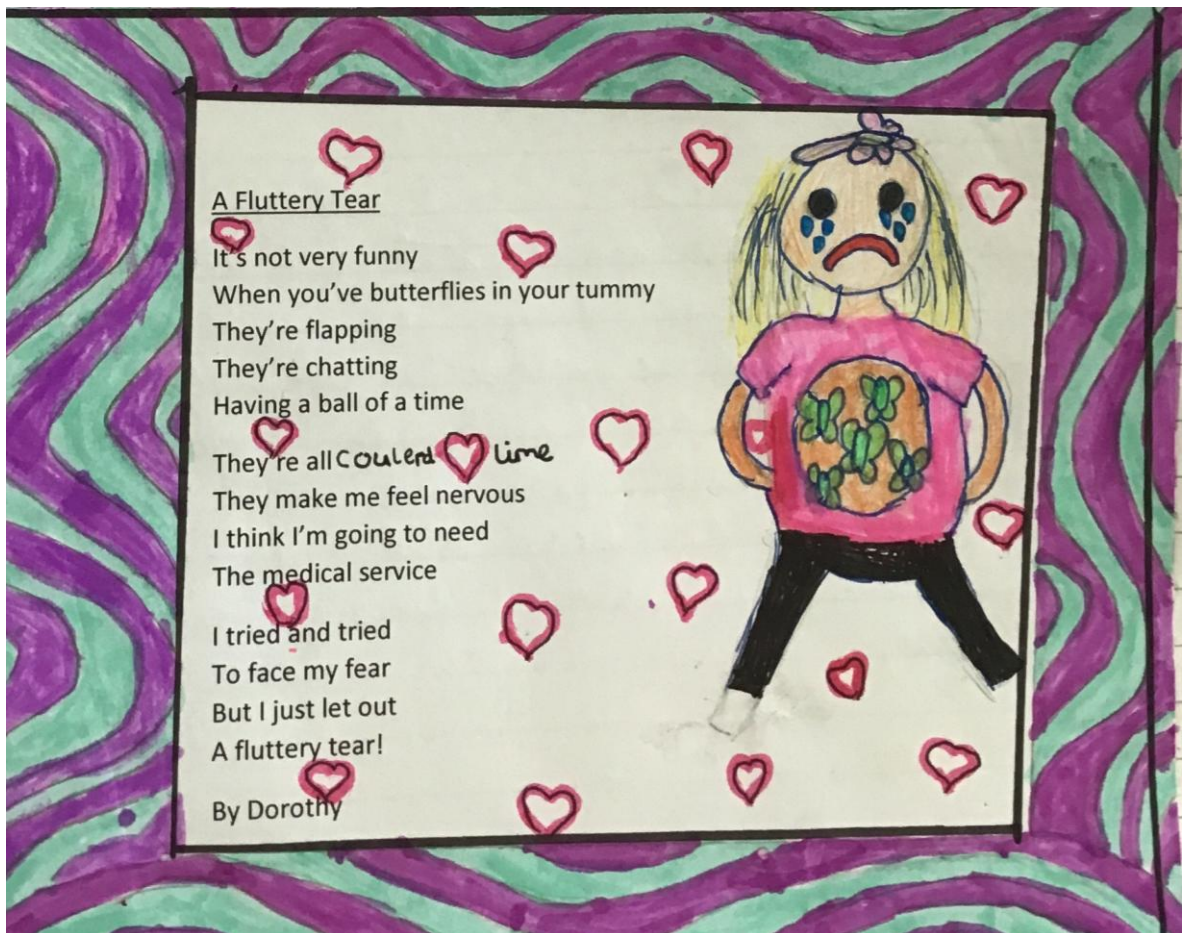 A Fluttery Tear
It's not very funny
When you've butterflies in your tummy
They're flapping
They're chatting
Having a ball of a time
They're all Coulerd lime
They make me feel nervous
I think I'm going to need
The medical service
I tried and tried
To face my fear
But I just let out
A fluttery tear!
By Dorothy